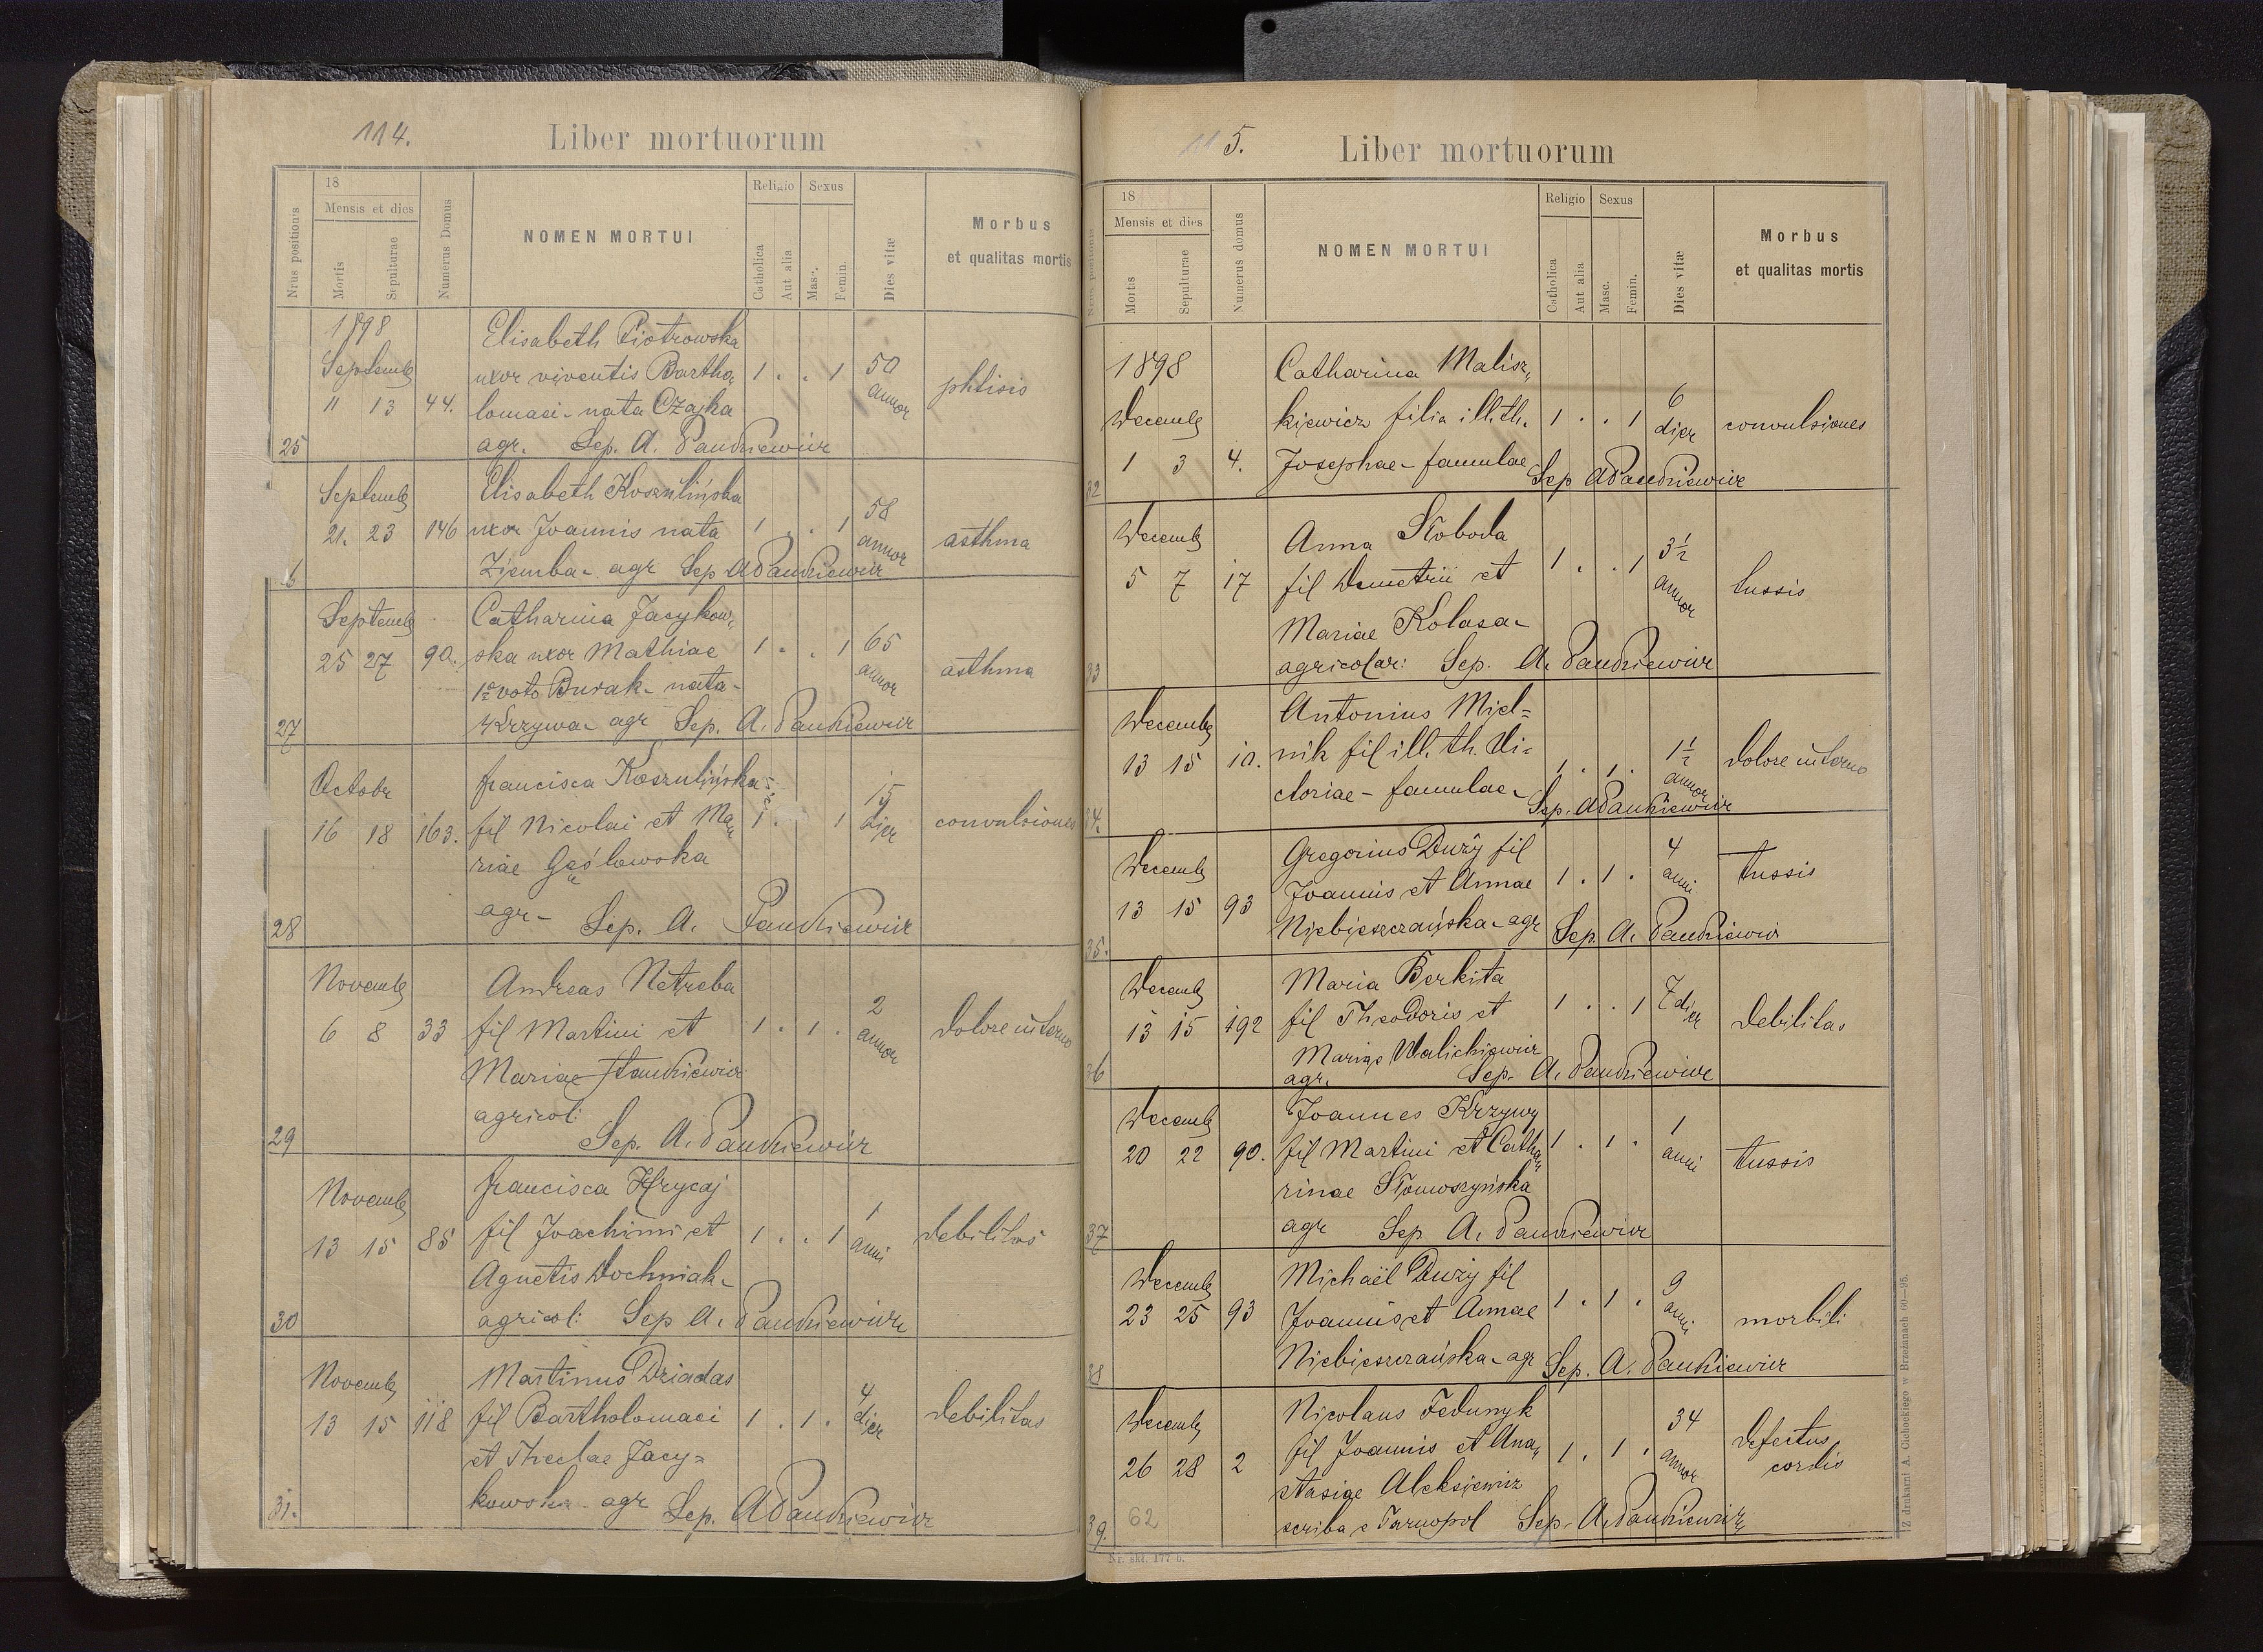 114.
Liber mortuorum
Nrus positionis
18
Mensis et dies
Mortis
Sepulturae
Numerus Domus
NOMEN MORTUI
Religio
Catholica
Aut alia
Sexus
Masc.
Femin.
Dies vitæ
Morbus
et qualitas mortis
1898
Septemb
11 13 44.
Elisabeth Piotrowska
uxor viventis Bartho„
lomaei - nata Czajka
agr. Sep. A. Pankiewicz
1 . . 1
50
annor
phtisis
25
Septemb
21. 23 146
Elisabeth Koszulińska
uxor Joannis nata
Ziemba - agr Sep A Pankiewicz
1 . . 1
58
annor
asthma
6
Septemb
25 27 90.
Catharina Jacykow„
ska uxor Mathiae
1o voto Burak - nata -
Krzywa - agr Sep. A. Pankiewicz
1 . . 1
65
annor
asthma
27
Octobr
16 18 163.
francisca Koszulińska
fil Nicolai et Ma„
riae Gęślowska
agr - Sep. A. Pankiewicz
1 . 1
15
dier
convulsiones
28
Novemb
6 8 33
Andreas Netreba
fil Martini et
Mariae Stankiewicz
agricol:
Sep. A. Pankiewicz
1 . 1 .
2
annor
dolore interno
29
Novemb
13 15 85
francisca Hrycaj
fil Joachimi et
Agnetis Dochniak -
agricol: Sep A. Pankiewicz
1 . . 1
1
anni
debilitas
30
Novemb
13 15 118
Martinus Dziadas
fil Bartholomaei
et Theclae Jacy=
kowska - agr Sep. A Pankiewicz
1 . 1 .
4
dier
debilitas
31.
115.
Liber mortuorum
18
Mensis et dies
Mortis
Sepulturae
Numerus domus
NOMEN MORTUI
Religio
Catholica
Aut alia
Sexus
Masc.
Femin.
Dies vitæ
Morbus
et qualitas mortis
1898
Decemb
1 3 4.
Catharina Malisz„
kiewicz filia ill. th.
Josephae - famulae
Sep A Pankiewicz
1 . . 1
6
dier
convulsiones
32
Decemb
5 7 17
Anna Słoboda
fil Demetrii et
Mariae Kolasa -
agricolar: Sep. A. Pankiewicz
1 . . 1
3½
annor
tussis
33
Decemb
13 15 10.
Antonius Miel=
nik fil ill. th. Vi=
ctoriae - famulae -
Sep. A Pankiewicz
1 . 1 .
1½
annor
dolore interno
34.
Decemb
13 15 93
Gregorius Duży fil
Joannis et Annae
Niebieszczańska - agr Sep. A. Pankiewicz
1 . 1 .
4
anni
tussis
35.
Decemb
13 15 192
Maria Berkita
fil Theodoris et
Mariae Walichiewicz
agr. Sep. A. Pankiewicz
1 . . 1
7 dier
debilitas
36
Decemb
20 22 90.
Joannes Krzywy
fil Martini et Catha„
rinae Słomoszyńska
agr Sep A. Pankiewicz
1 . 1 .
1
anni
tussis
37
Decemb
23 25 93
Michaël Duży fil
Joannis et Annae
Niebieszczańska - agr Sep. A. Pankiewicz
1 . 1 .
9
anni
morbili
38
Decemb
26 28 2
Nicolaus Fedunyk
fil Joannis et Ana„
stasiae Aleksiewicz
scriba e Tarnopol Sep. A. Pankiewicz
1 . 1 .
34
annor
defectus
cordis
39.
62
Nr. skł. 177 b.
Z drukarni A. Cichockiego w Brzeżanach 60—95.